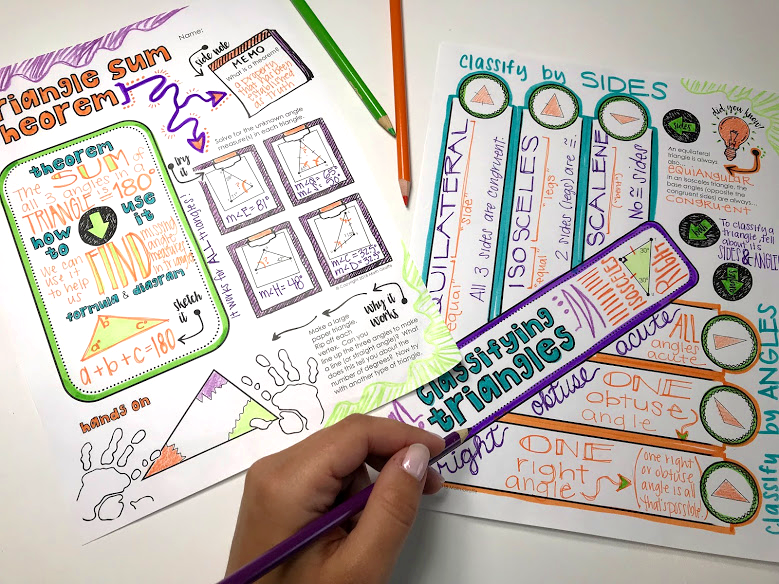 Name:
Triangle Sum
Theorem
side note
MEMO
What is a theorem?
theorem
The SUM of
all 3 angles in a
TRIANGLE is 180°
how to use it
we can
use it
to help
us
FIND
missing
angle
measures
formula & diagram
sketch it
a
b
c
a+b+c=180
try it
Solve for the unknown angle
measure(s) in each triangle.
It works for ALL triangles
m<E = 81°
m<H = 48°
Why it
works
Make a large
paper triangle.
Rip off each
vertex. Can you
line up the three angles to make
a line (or straight angle)? What
does this tell you about the
number of degrees? Now try
with another type of triangle.
hands on
classify by SIDES
EQUILATERAL
"equal" "side"
All 3 sides are congruent.
ISOSCELES
"equal" "legs"
2 sides (legs) are ≅
SCALENE
No ≅ sides
sides
did you know?
An equilateral
triangle is always
also...
EQUIANGULAR
In an isosceles triangle, the
base angles (opposite the
congruent sides) are always...
CONGRUENT
To classify a
triangle, tell
about its
SIDES & ANGLES
classifying
triangles
isosceles
right
acute
ALL
angles
acute
obtuse
ONE
obtuse
angle
right
ONE
right
angle
(one right
or obtuse
angle is all
that's possible.)
classify by ANGLES